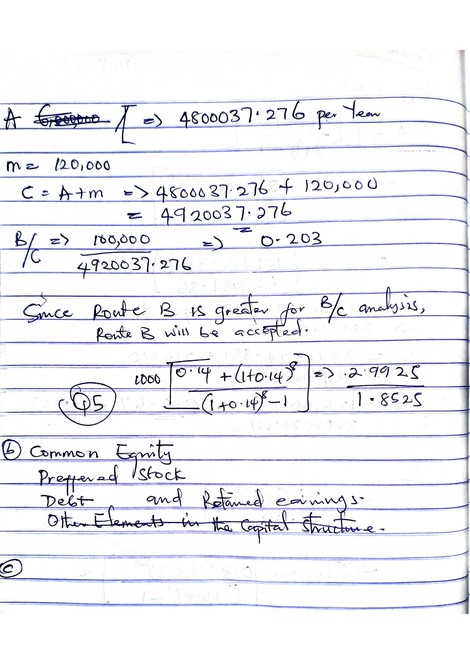 A [ => 4800037.276 per Year
m = 120,000
C = A+m => 4800037.276 + 120,000
= 4920037.276
B/C => 100,000 / 4920037.276 => = 0.203
Since Route B is greater for B/C analysis,
Route B will be accepted.
Q5 1000 [0.14 + (1+0.14)^8 / (1+0.14)^8 - 1] => .2.9925 / 1.8525
(b) Common Equity
Preffered Stock
Debt and Retained earnings.
Other Elements in the Capital Structure.
(c)